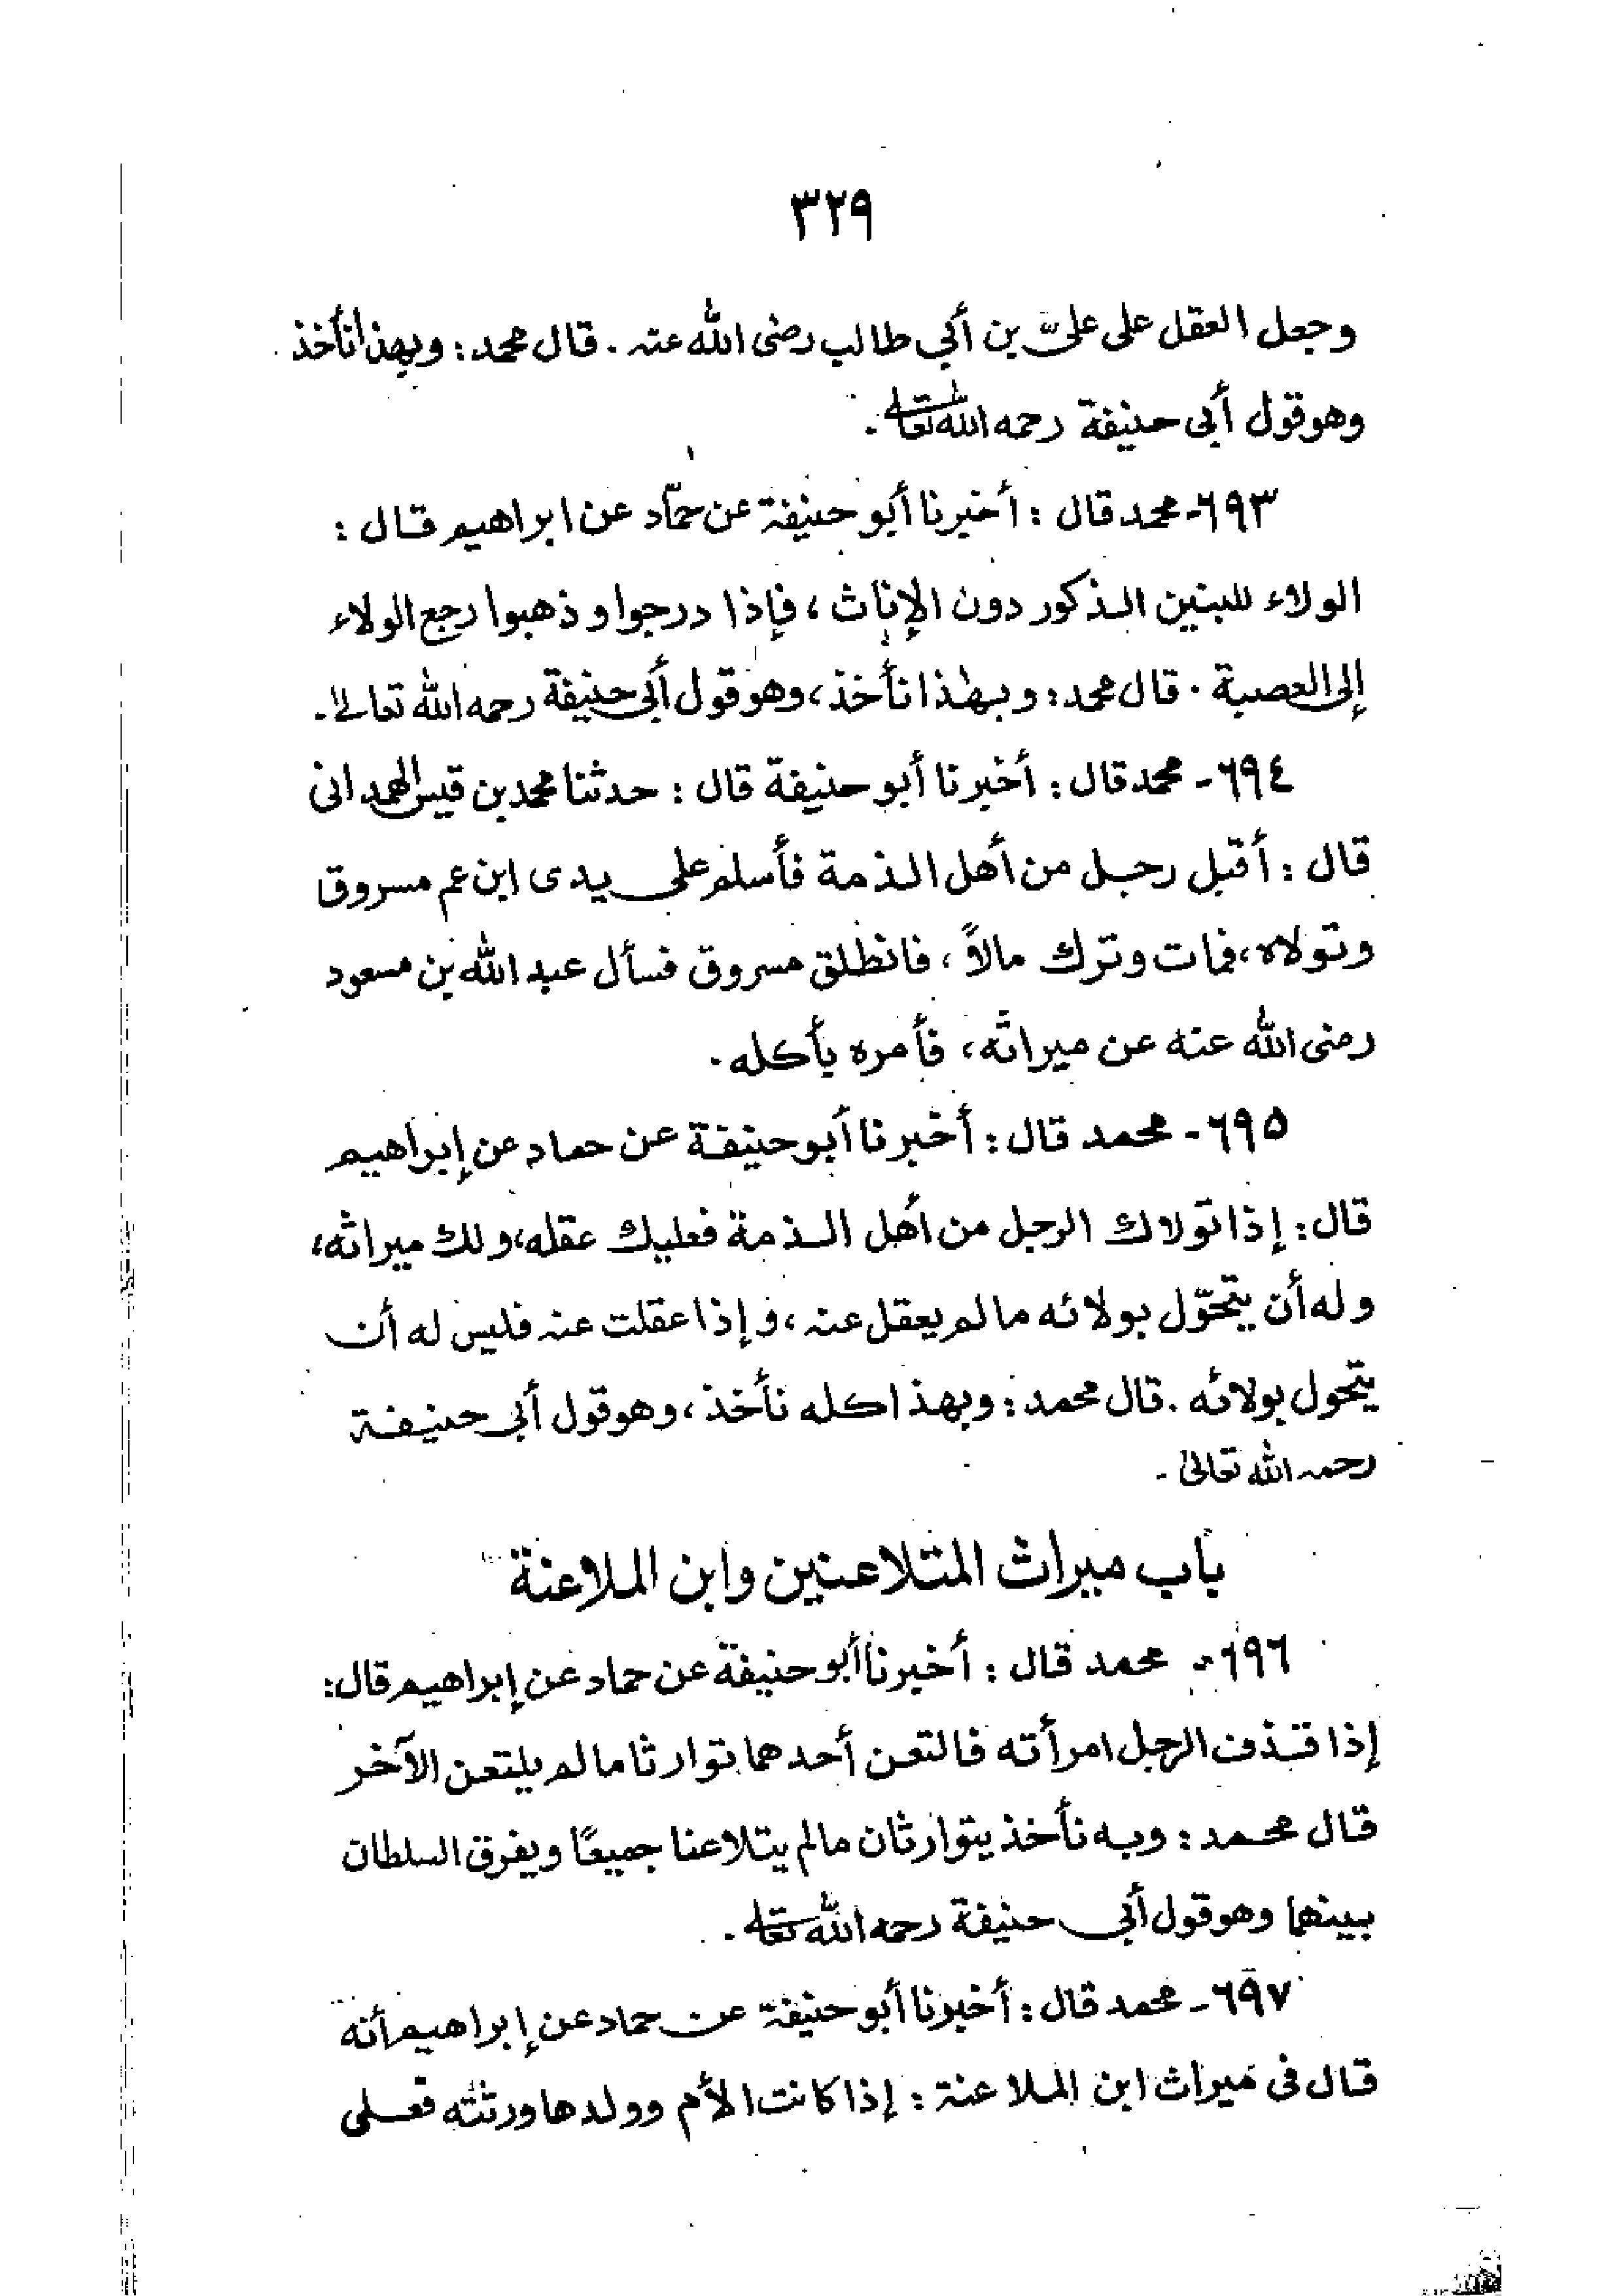 ٣٢٩
وجعل العقل على علىّ بن أبي طالب رضى الله عنه . قال محمد : وبهذا نأخذ
وهو قول أبى حنيفة رحمه الله تعالى .
٦٩٣- محمد قال : أخبرنا أبو حنيفة عن حمّاد عن ابراهيم قال :
الولاء للبنين الذكور دون الإناث ، فإذا درجوا و ذهبوا رجع الولاء
إلى العصبة . قال محمد : وبهذا نأخذ ، وهو قول أبى حنيفة رحمه الله تعالى .
٦٩٤ - محمد قال : أخبرنا أبو حنيفة قال : حدثنا محمد بن قيس الهمدانى
قال : أقبل رجل من أهل الذمة فأسلم على يدى ابن عم مسروق
وتولاه ، فمات وترك مالاً ، فانطلق مسروق فسأل عبد الله بن مسعود
رضى الله عنه عن ميراثه ، فأمره بأكله .
٦٩٥ - محمد قال : أخبرنا أبو حنيفة عن حماد عن إبراهيم
قال : إذا تولاك الرجل من أهل الذمة فعليك عقله ، ولك ميراثه ،
وله أن يتحوّل بولائه ما لم يعقل عنه ، وإذا عقلت عنه فليس له أن
يتحول بولائه . قال محمد : وبهذا كله نأخذ ، وهو قول أبى حنيفة
رحمه الله تعالى -
باب ميراث المتلاعنين وابن الملاعنة
٦٩٦ - محمد قال : أخبرنا أبو حنيفة عن حماد عن إبراهيم قال :
إذا قذف الرجل امرأته فالتعن أحدهما توارثا ما لم يلتعن الآخر
قال محمد : وبه نأخذ يتوارثان مالم يتلاعنا جميعًا ويفرق السلطان
بينهما وهو قول أبى حنيفة رحمه الله تعالى .
٦٩٧ - محمد قال : أخبرنا أبو حنيفة عن حماد عن إبراهيم أنه
قال فى ميراث ابن الملاعنة : إذا كانت الأم وولدها ورثته فعلى